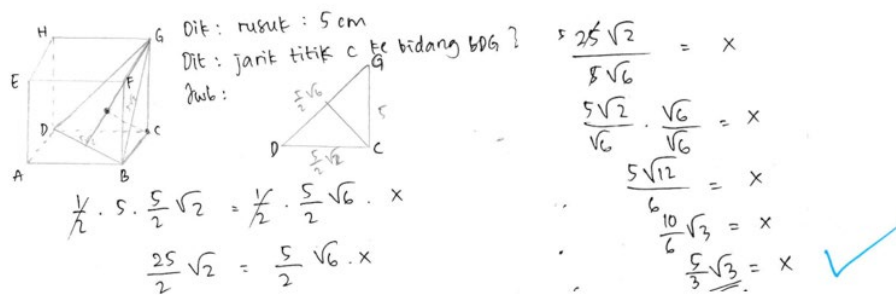 H
G
E
F
D
C
A
B
Dik : rusuk : 5 cm
Dit : jarik titik C ke bidang BDG ?
Jwb :
G
5/2 √6
5
D
5/2 √2
C
1/2 . 5 . 5/2 √2 = 1/2 . 5/2 √6 . x
25/2 √2 = 5/2 √6 . x
25√2 / 5√6 = x
5√2/√6 . √6/√6 = x
5√12/6 = x
10/6 √3 = x
5/3 √3 = x